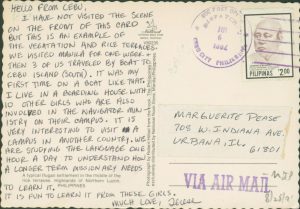 HELLO FROM CEBU,
I HAVE NOT VISITED THE SCENE
ON THE FRONT OF THIS CARD
BUT THIS IS AN EXAMPLE OF
THE VEGETATION AND RICE TERRACES.
WE VISITED MANILA FOR ONE WEEK
THEN 3 OF US TRAVELED BY BOAT TO
CEBU ISLAND (SOUTH). IT WAS MY
FIRST TIME ON A BOAT LIKE THAT.
I LIVE IN A BOARDING HOUSE WITH
10 OTHER GIRLS WHO ARE ALSO
INVOLVED IN THE NAVIGATOR MIN
ISTRY ON THEIR CAMPUS. IT IS
VERY INTERESTING TO VISIT A
CAMPUS IN ANOTHER COUNTRY. WE
ARE STUDYING THE LANGUAGE ONE
HOUR A DAY TO UNDERSTAND HOW
A LONGER TERM MISSIONARY NEEDS
TO LEARN IT.
IT IS FUN TO LEARN IT FROM THESE GIRLS.
MUCH LOVE,
A typical Ifugao settlement in the middle of the
rice terraces, Highlands of Northern Luzon,
PHILIPPINES
1982
PILIPINAS
2.00
MARGUERITE PEASE
708 W. INDIANA AVE
URBANA, IL
61801
VIA AIR MAIL